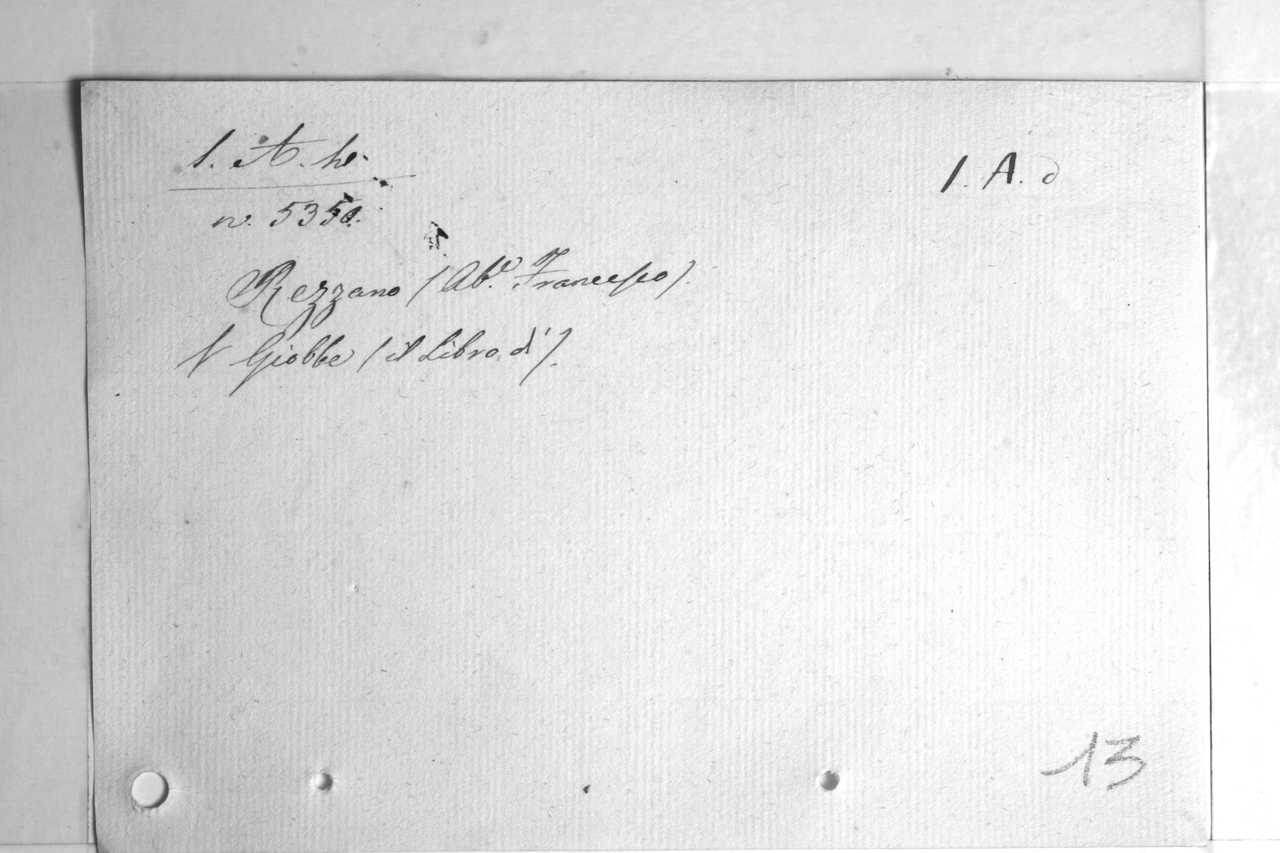 1. A. he.
1. A. d
n. 5350.
Rezzano (Ab.e Francesco).
V Giobbe (il Libro di).
13